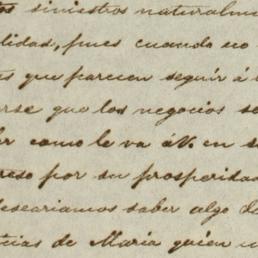 os siniestros naturalm
lidad, pues cuando no
as que parecen seguir á
rse que los negocios se
er como le va á V. en s
reso por su prosperidad
desearíamos saber algo d
cias de María quien